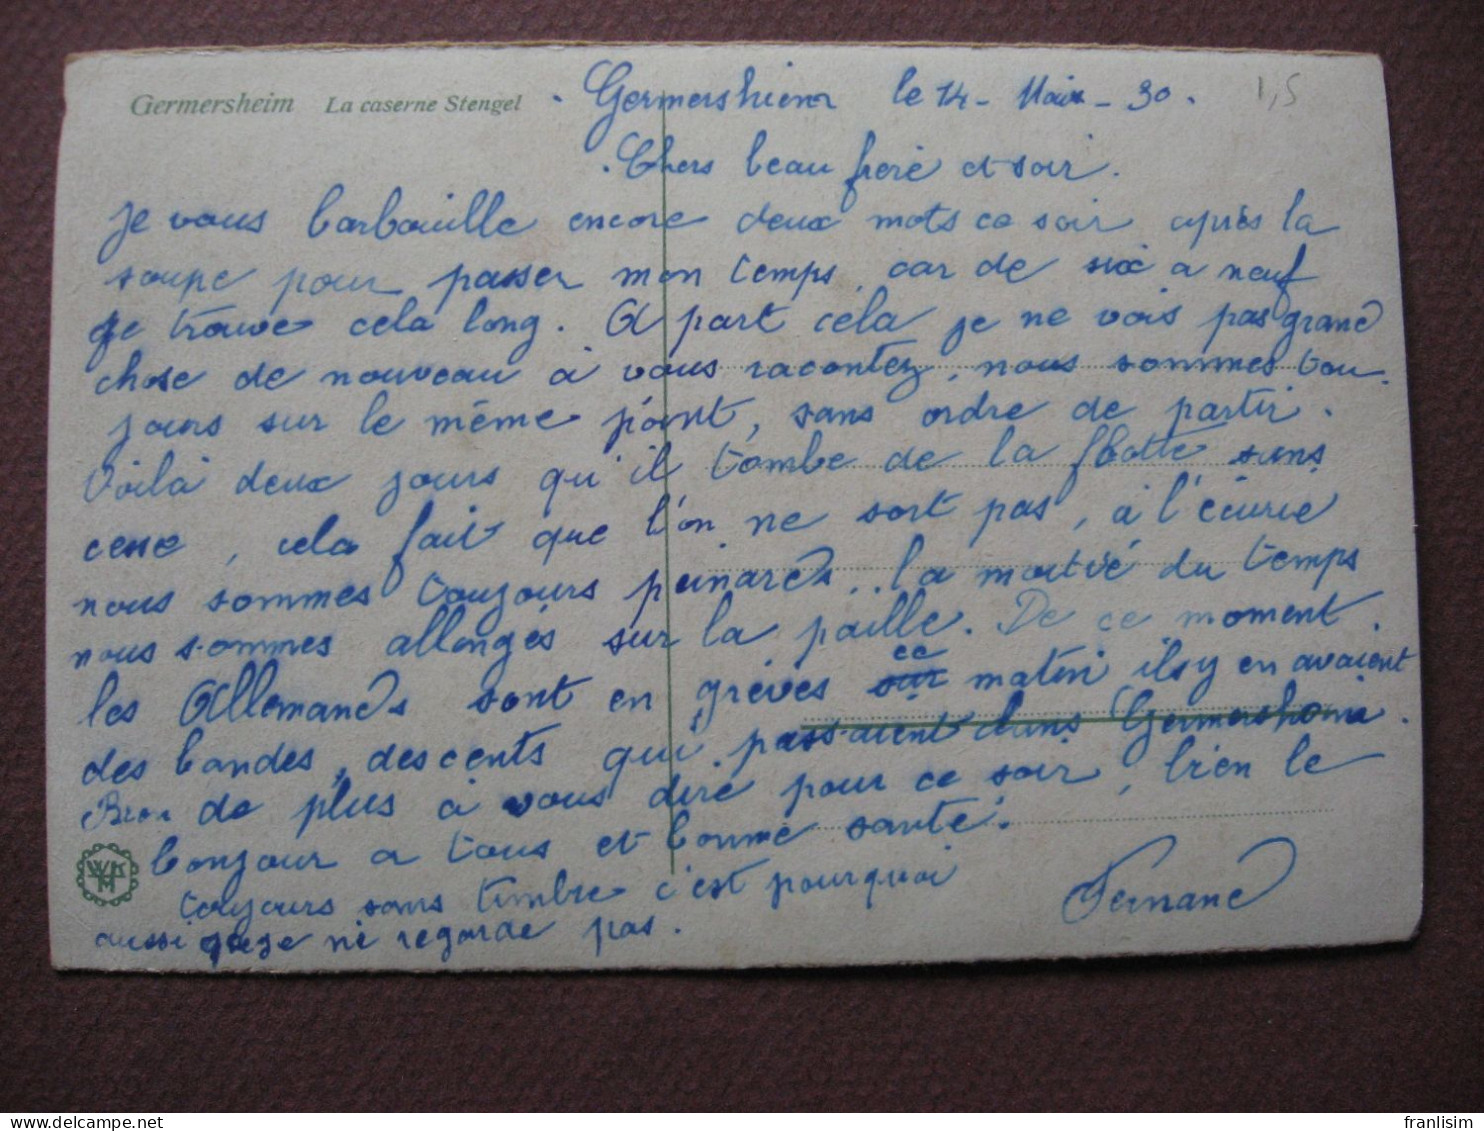 Germersheim La caserne Stengel
Germershiem le 14 - Mai - 30.
1,5
Chers beau frere et soir.
Je vous barbouille encore deux mots ce soir après la
soupe pour passer mon temps, car de six a neuf
je trouve cela long. A part cela je ne vois pas grand
chose de nouveau à vous racontez, nous sommes tou-
jours sur le même point, sans ordre de partir.
Voilà deux jours qu'il tombe de la flotte sans
cesse, cela fait que l'on ne sort pas, à l'écurie
nous sommes toujours peinards.. la moitié du temps
nous sommes allongés sur la paille. De ce moment.
les Allemands sont en grèves ce matin ils y en avaient
des bandes, descents qui passaient dans
Rien de plus à vous dire pour ce soir, bien le
bonjour a tous et bonne santé.
Fernand
toujours sans timbre c'est pourquoi
aussi que je ni regarde pas.
franlisim
www.delcampe.net